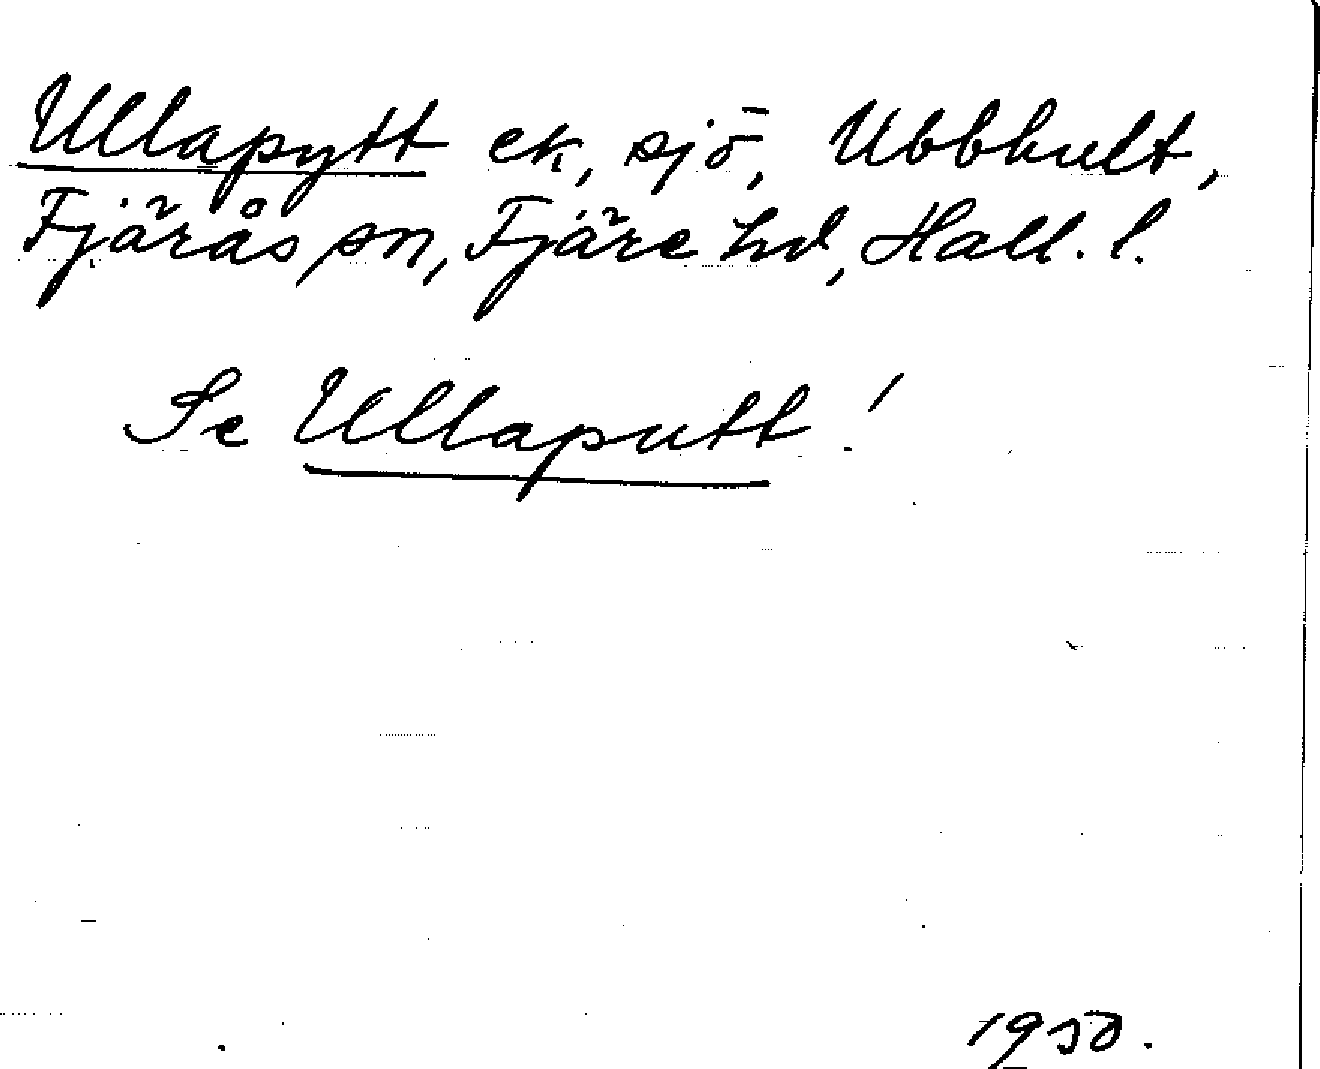 Ullapytt ek, sjö, Ubbhult,
Fjärås sn, Fjäre hd, Hall. l.
Se Ullaputt!
1950.